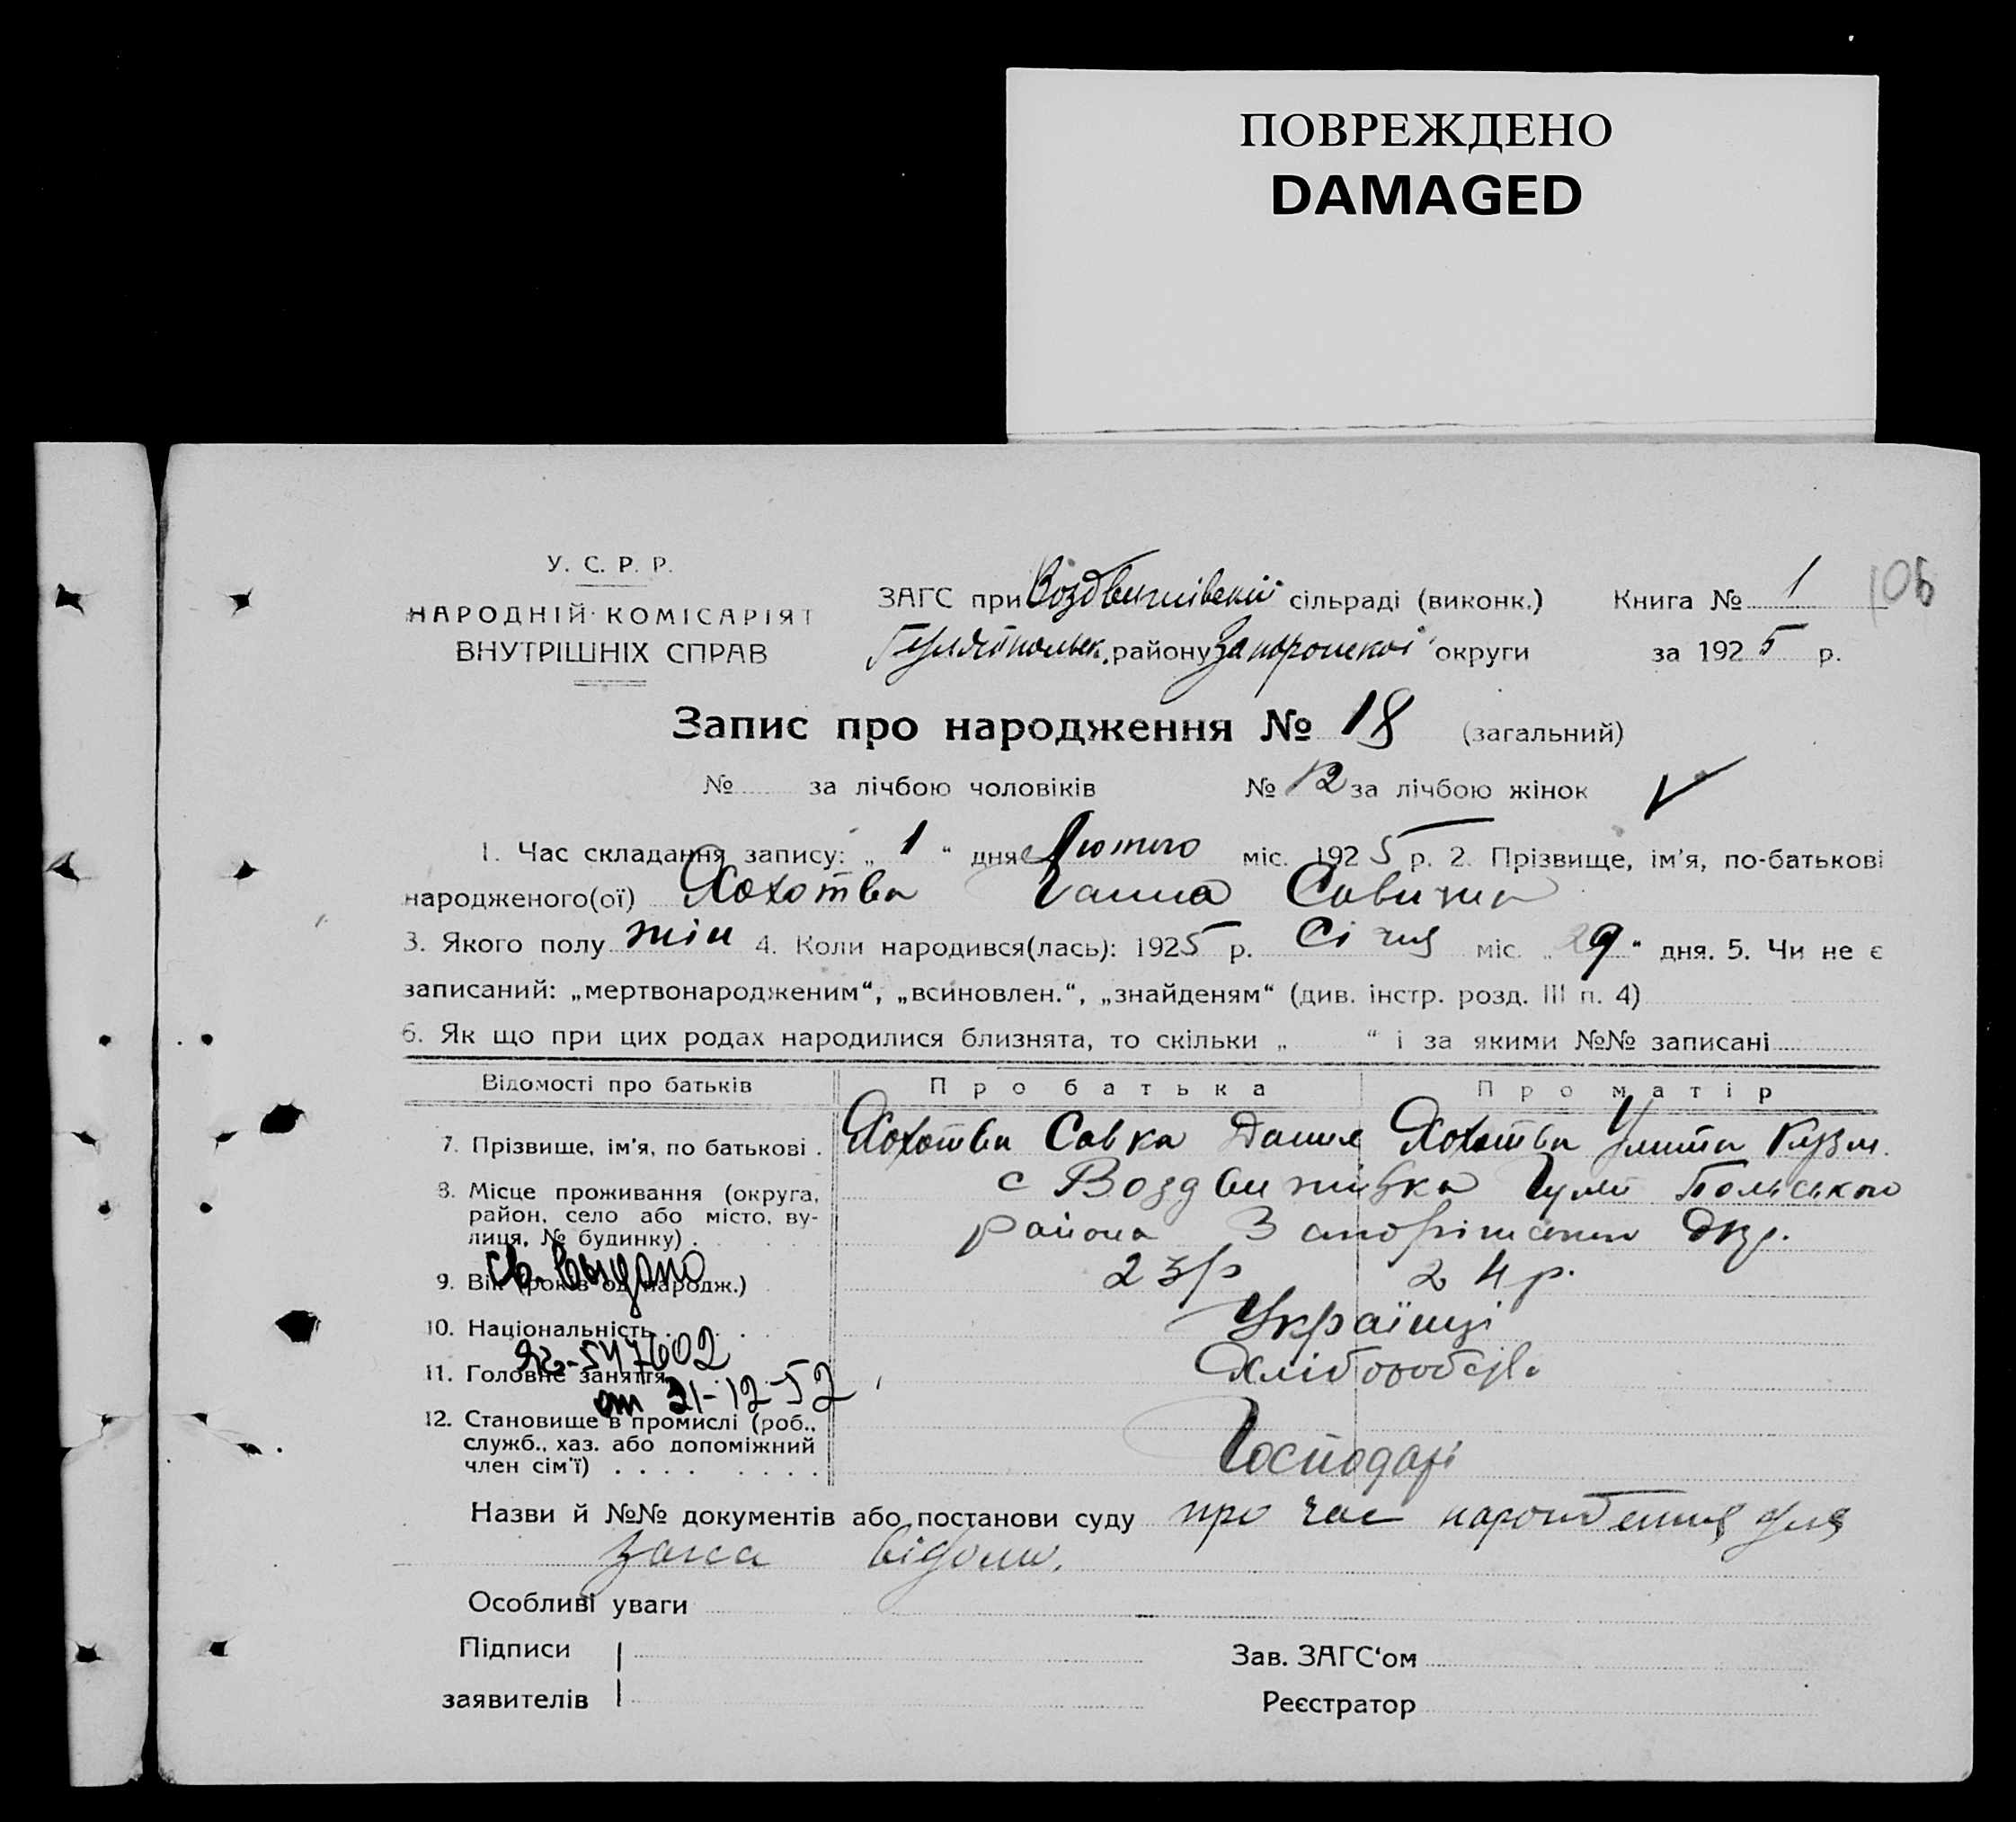 ПОВРЕЖДЕНО
DAMAGED
У. С. Р. Р.
НАРОДНІЙ КОМІСАРІЯТ
ВНУТРІШНІХ СПРАВ
ЗАГС при Воздвижівскій сільраді (виконк.)
району Запорожскої округи
Книга № 1
106
за 1925 р.
Запис про народження № 18 (загальний)
№ за лічбою чоловіків № 12 за лічбою жінок
1. Час складання запису: „ 1 “ дня Лютого міс. 1925 р. 2. Прізвище, ім'я, по-батькові
народженого(ої) Хохотва Ганна Савична
3. Якого полу жін 4. Коли народився(лась): 1925 р. Січня міс. „ 29 “ дня. 5. Чи не є
записаний: „мертвонародженим“, „всиновлен.“, „знайденям“ (див. інстр. розд. III п. 4)
6. Як що при цих родах народилися близнята, то скільки „ “ і за якими №№ записані
Відомості про батьків Про батька Про матір
7. Прізвище, ім'я, по батькові . Хохотва Савка Данил Хохотва Улита Кузм.
8. Місце проживання (округа, с Воздвижівка Гуляй Польського
район, село або місто, ву-
лиця, № будинку) . района Запоріжської Окр.
св. выдано
9. Вік (років од народж.) 23 р 24 р.
10. Національність Українці
547602
11. Головне заняття Хліборобств.
от 21-12-52
12. Становище в промислі (роб.,
служб., хаз. або допоміжний
член сім'ї) . . . . Господарі
Назви й №№ документів або постанови суду про час народження для
загса відом.
Особливі уваги
Підписи
заявителів
Зав. ЗАГС‘ом
Реєстратор